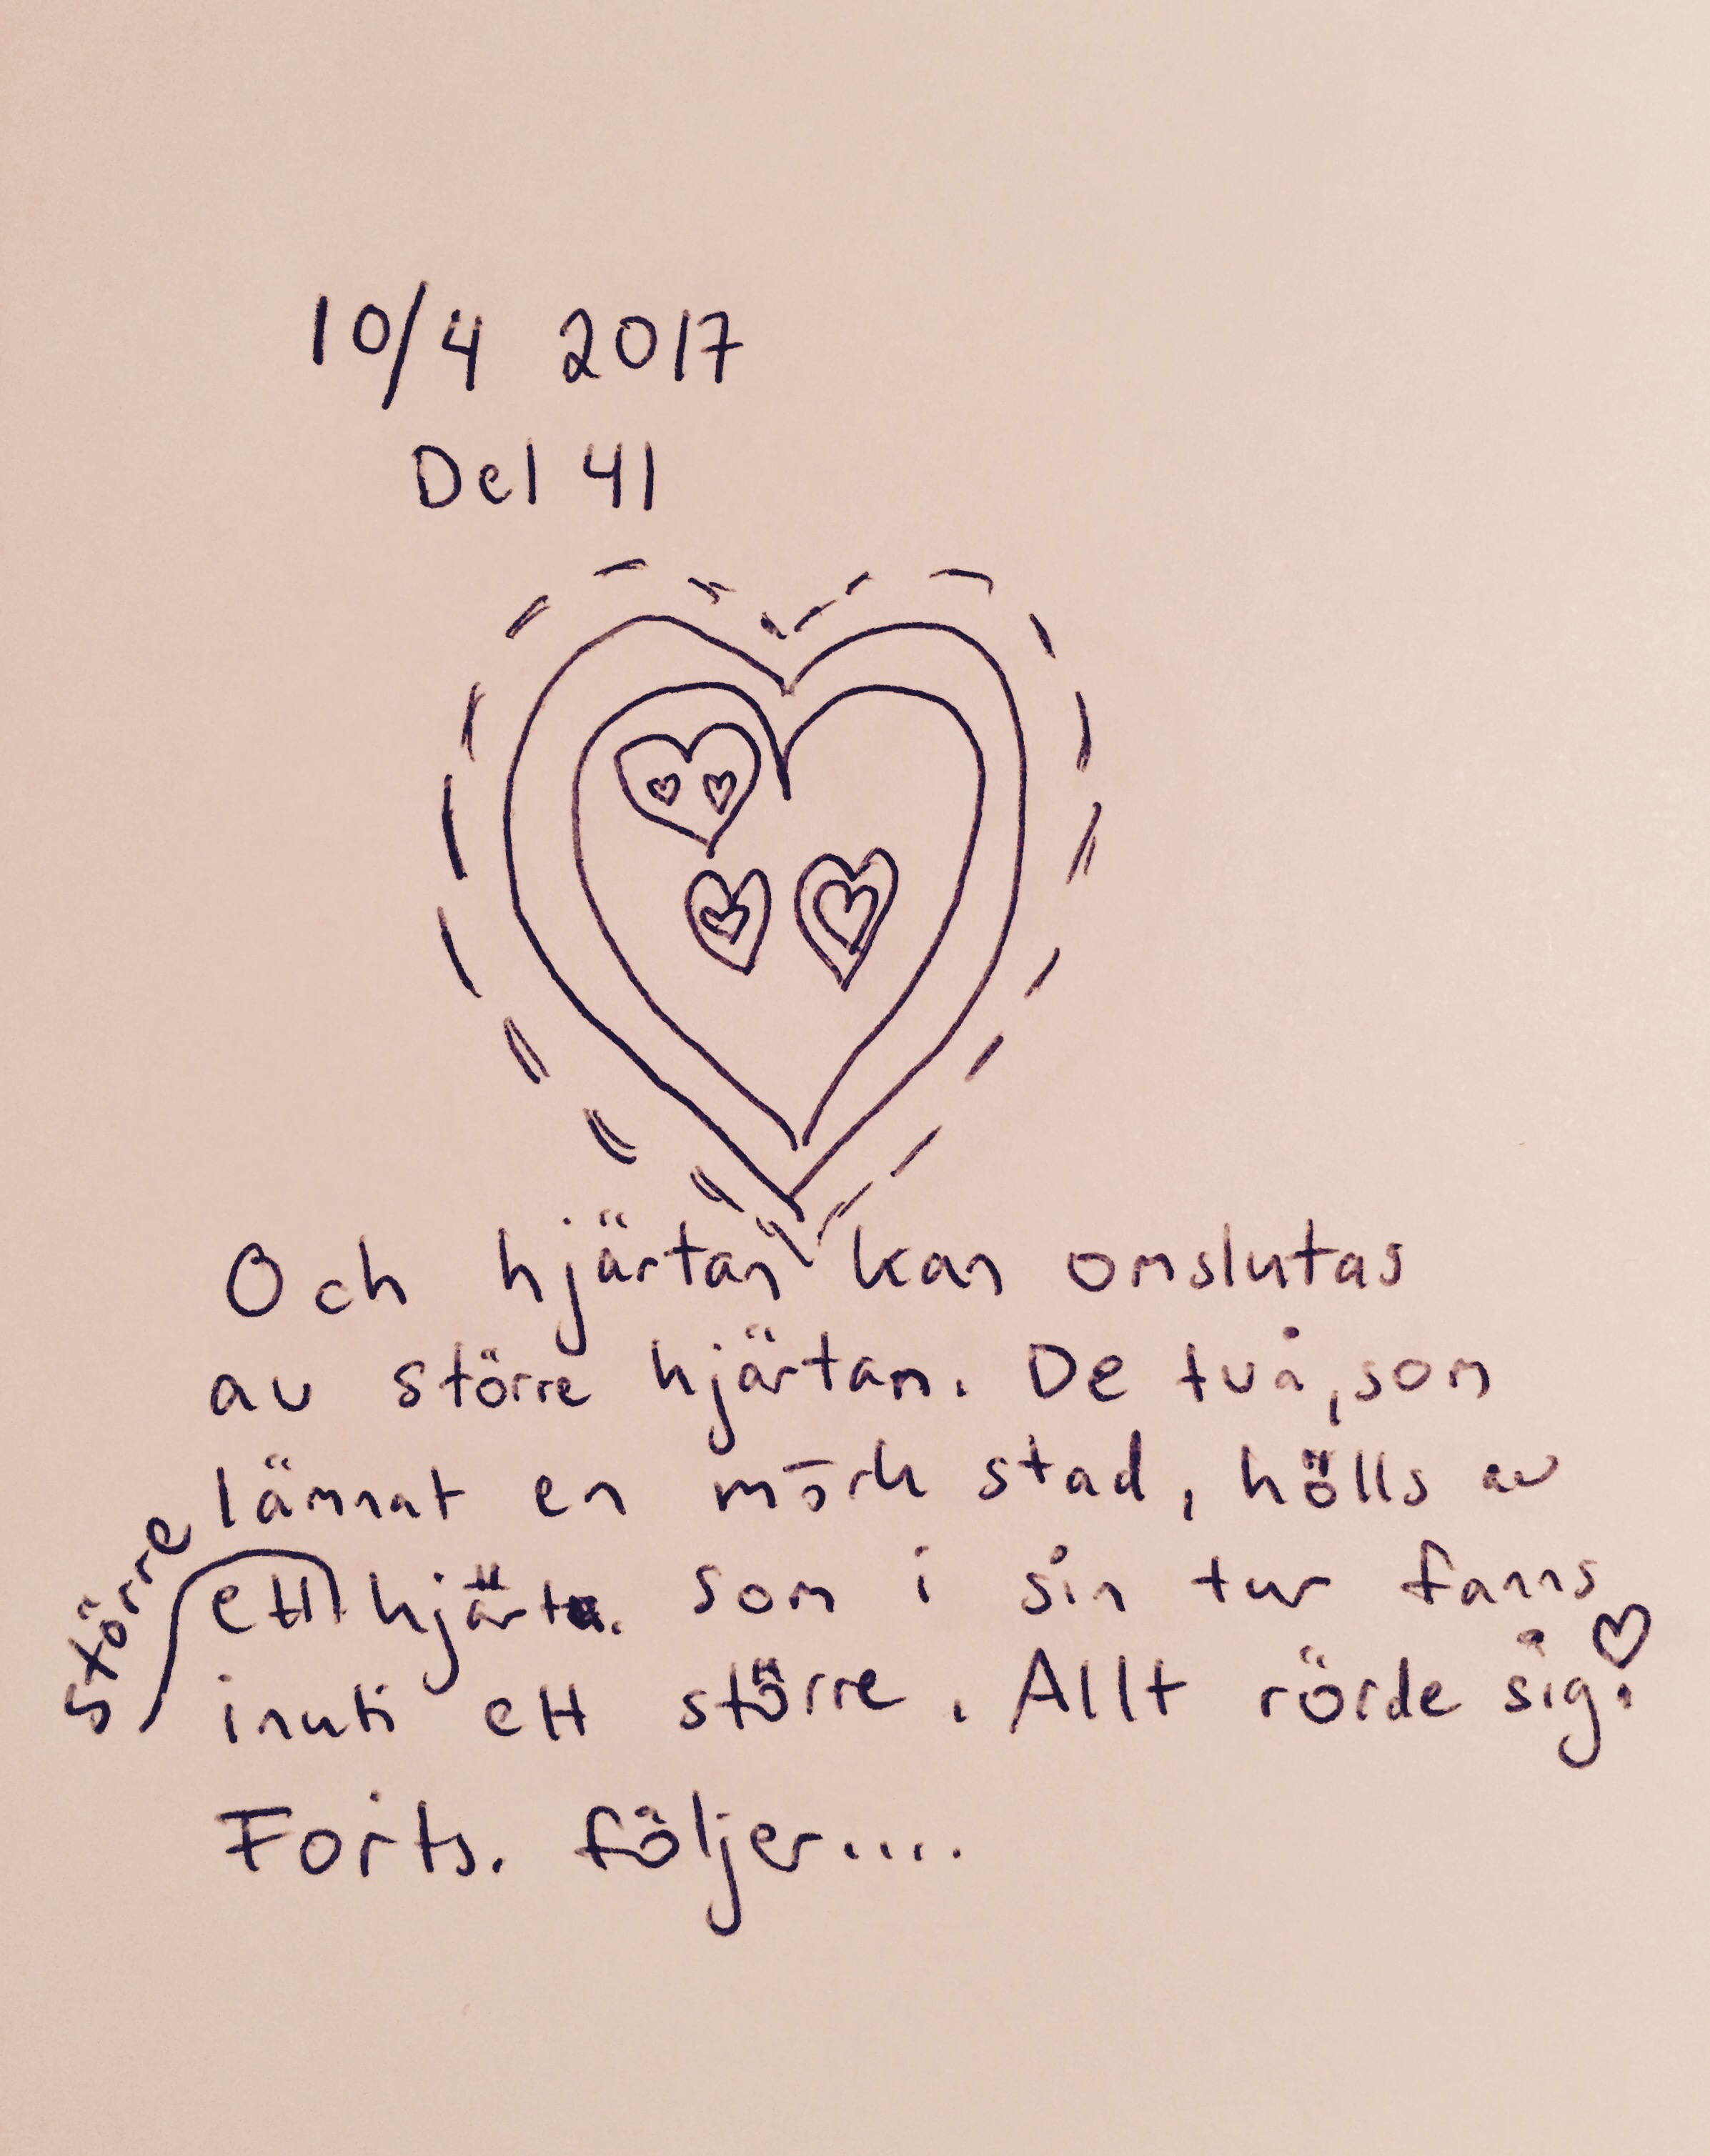 10/4 2017
Del 41
Och hjärtan kan omslutas
av större hjärtan. De två, som
lämnat en mörk stad, hölls av
ett större hjärta som i sin tur fanns
inuti ett större. Allt rörde sig.
Forts. följer....